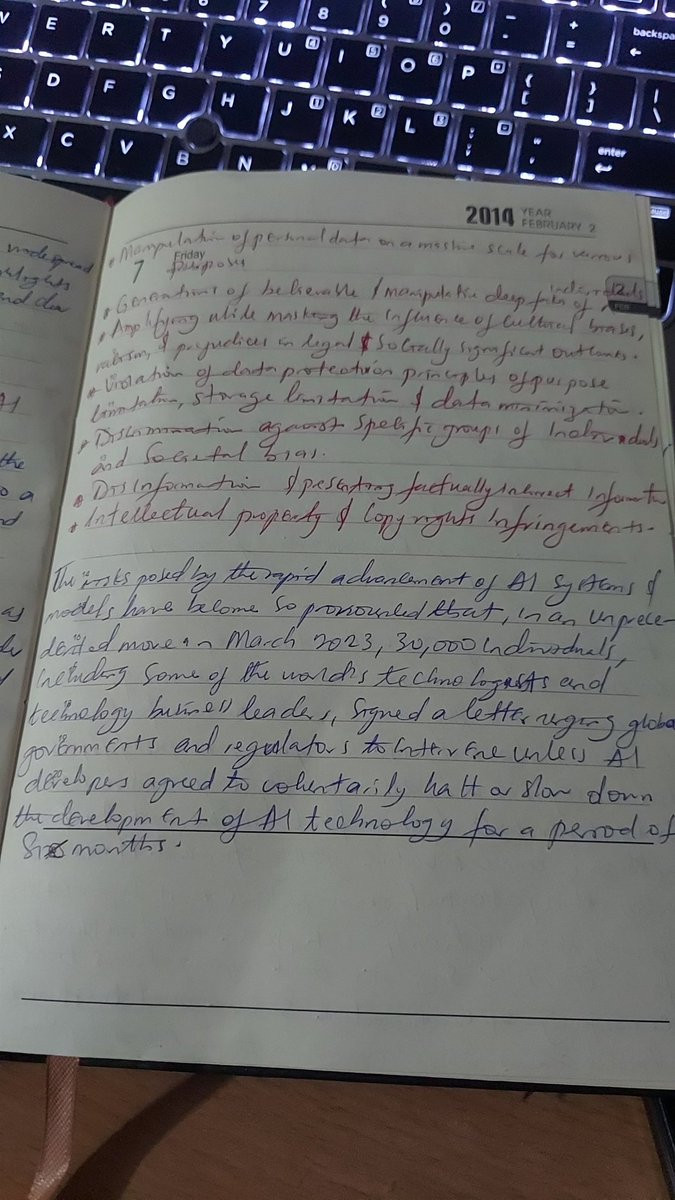 7
8
9
0
-
+
=
backspa
E
R
T
Y
U
I
O
P
D
F
G
H
J
K
L
enter
X
C
V
B
N
M
widespread
and
the
to a
nd
as
2014 YEAR
FEBRUARY 2
* Manipulation of personal data on a massive scale for various
7 Friday purposes
* Generations of believable & manipulative deep fakes of individuals
* Amplifying while masking the influence of cultural biases,
racism, & prejudices in legal & socially significant outcomes.
* Violation of data protection principles of purpose
limitation, storage limitation & data minimization.
* Discrimination against specific groups of individuals,
and societal bias.
* Disinformation & presenting factually incorrect information
* Intellectual property & Copyrights infringements.
The risks posed by the rapid advancement of AI systems &
models have become so pronounced that, in an unprece-
dented move in March 2023, 30,000 individuals,
including some of the world's technologists and
technology business leaders, signed a letter urging global
governments and regulators to intervene unless AI
developers agreed to voluntarily halt or slow down
the development of AI technology for a period of
Six months.